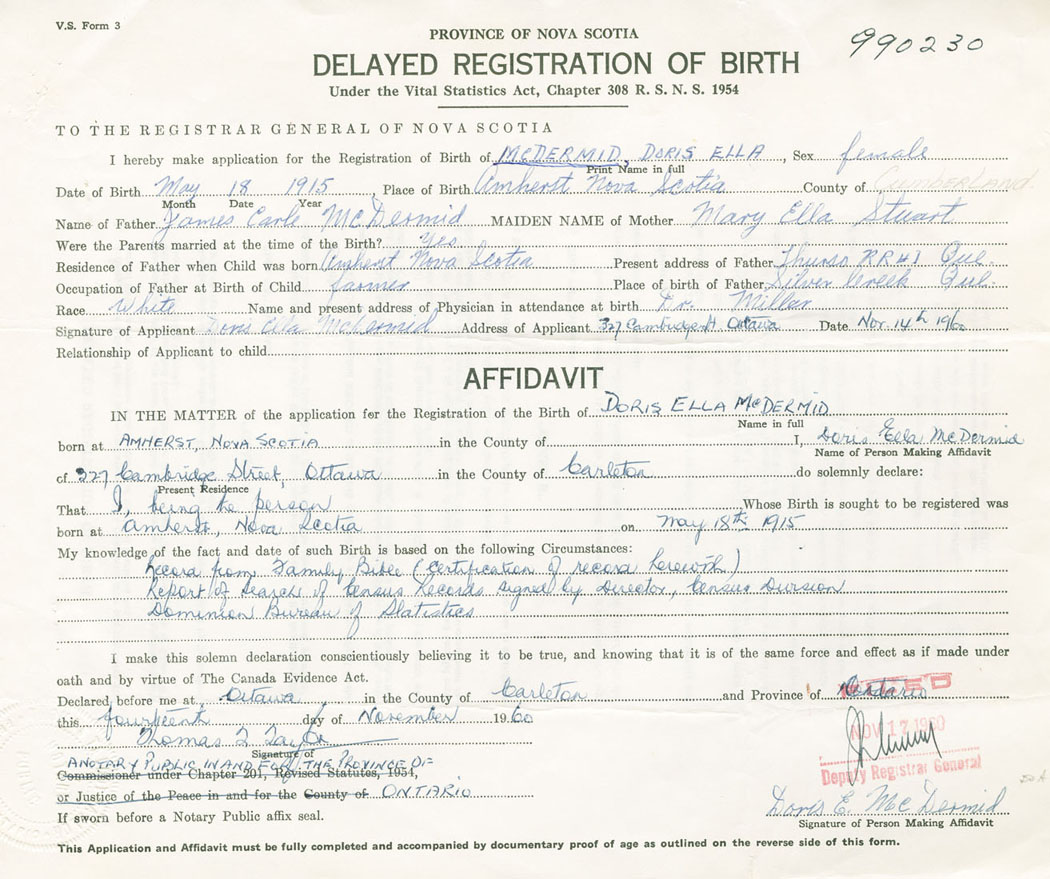 V.S. Form 3
PROVINCE OF NOVA SCOTIA
990230
DELAYED REGISTRATION OF BIRTH
Under the Vital Statistics Act, Chapter 308 R. S. N. S. 1954
TO THE REGISTRAR GENERAL OF NOVA SCOTIA
I hereby make application for the Registration of Birth of MCDERMID, DORIS ELLA, Sex female
Print Name in full
Date of Birth May 18 1915, Place of Birth Amherst Nova Scotia County of CUMBERLAND
Month Date Year
Name of Father James Earle McDermid MAIDEN NAME of Mother Mary Ella Stuart
Were the Parents married at the time of the Birth? Yes
Residence of Father when Child was born Amherst Nova Scotia Present address of Father Thurso RR#1 Que.
Occupation of Father at Birth of Child farmer Place of birth of Father Silver Creek Que.
Race White Name and present address of Physician in attendance at birth Dr. Miller
Signature of Applicant Doris Ella McDermid Address of Applicant 327 Cambridge Ottawa Date Nov. 14th 1960
Relationship of Applicant to child
AFFIDAVIT
IN THE MATTER of the application for the Registration of the Birth of DORIS ELLA MCDERMID
Name in full
born at AMHERST, NOVA SCOTIA in the County of I, Doris Ella McDermid
Name of Person Making Affidavit
of 327 Cambridge Street, Ottawa in the County of Carleton do solemnly declare:
Present Residence
That I, being the person Whose Birth is sought to be registered was
born at Amherst, Nova Scotia on May 18th 1915
My knowledge of the fact and date of such Birth is based on the following Circumstances:
Record from Family Bible (Certification of record herewith)
Report of Search of Census Records signed by Director, Census Division
Dominion Bureau of Statistics
I make this solemn declaration conscientiously believing it to be true, and knowing that it is of the same force and effect as if made under
oath and by virtue of The Canada Evidence Act.
Declared before me at Ottawa in the County of Carleton and Province of Ontario
this fourteenth day of November 1960
NOV 17 1960
Thomas L Taylor
Signature of
Deputy Registrar General
A NOTARY PUBLIC IN AND FOR THE PROVINCE OF
Commissioner under Chapter 201, Revised Statutes, 1954,
or Justice of the Peace in and for the County of ONTARIO
Doris E. McDermid
If sworn before a Notary Public affix seal.
Signature of Person Making Affidavit
This Application and Affidavit must be fully completed and accompanied by documentary proof of age as outlined on the reverse side of this form.